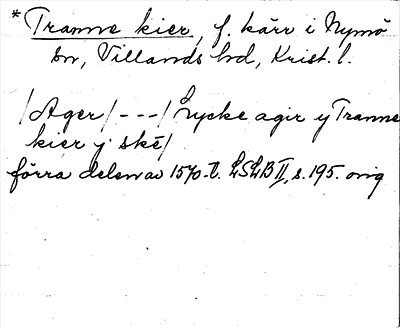 * Tranne kier, f. kärr i Nymö
sn, Villands hd, Krist. l.
/Ager/ --- / Lycke agir y Tranne
kier j ské/
förra delen av 1570-t. LSLB II, s. 195. orig